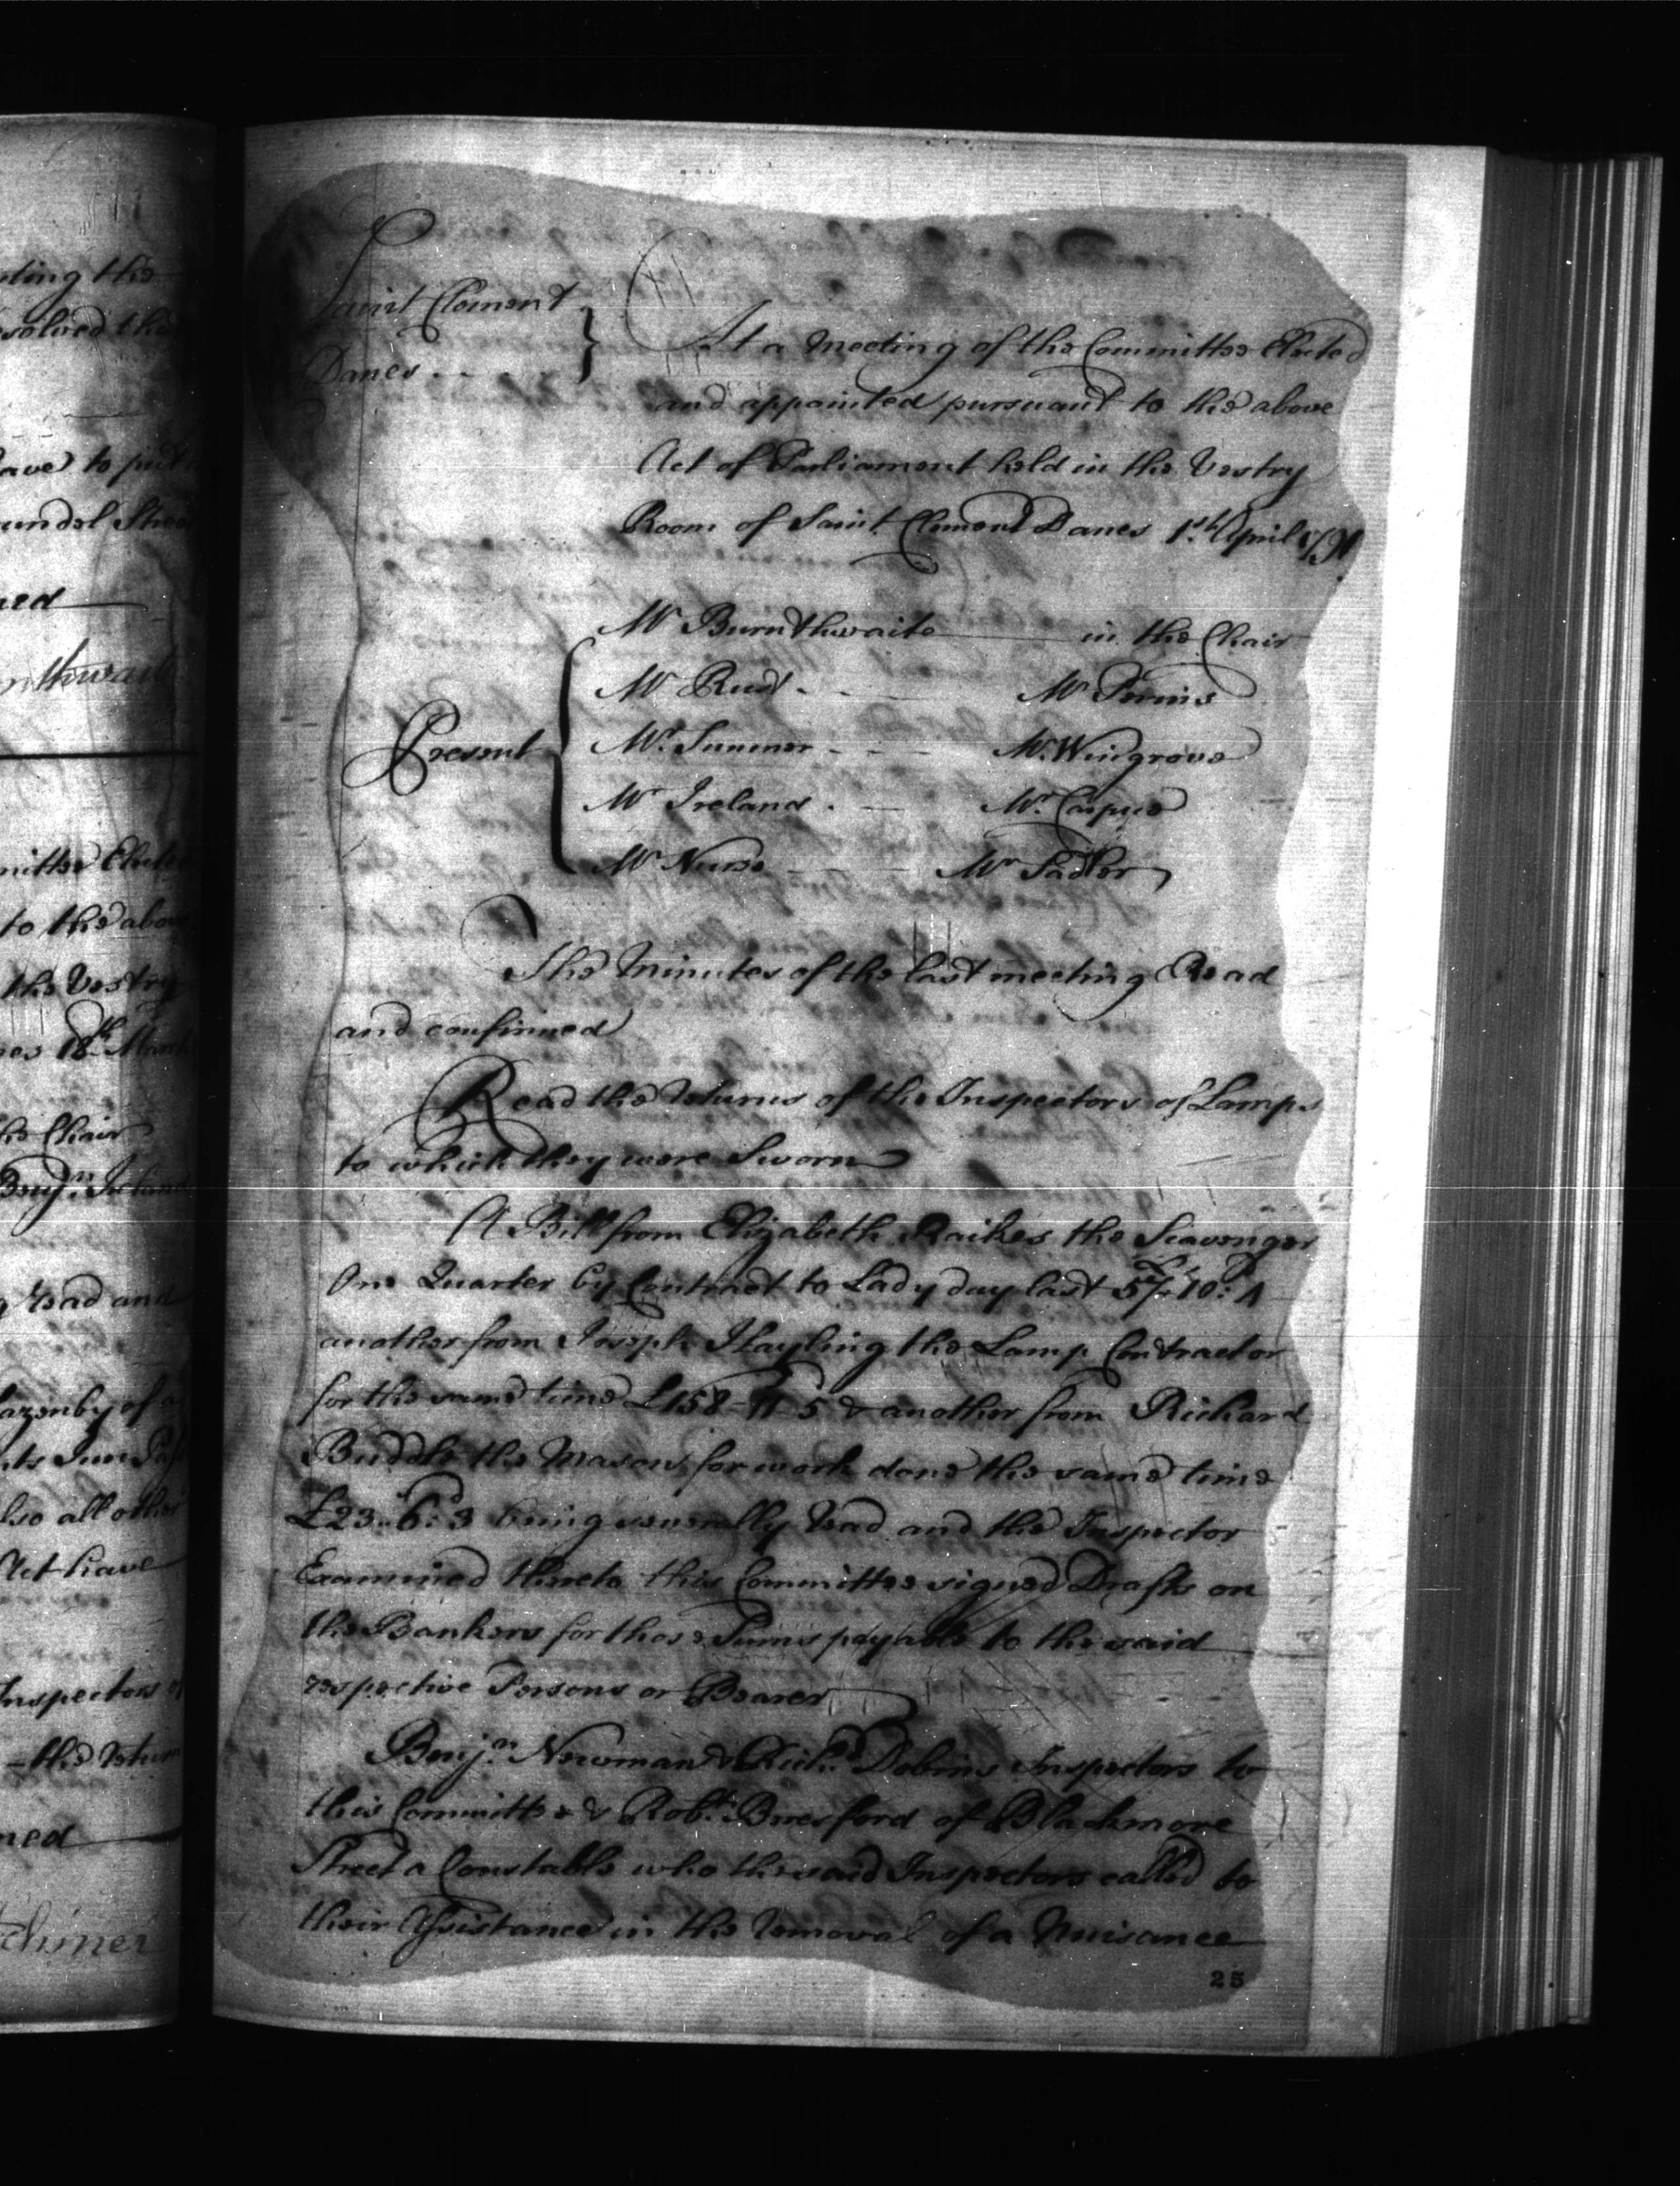 Saint Clement
Danes
At a Meeting of the Committee Elected
and appointed pursuant to the above
Act of Parliament held in the Vestry
Room of Saint Clement Danes 1st April
Mr Burnthwaite in the Chair
Mr Rudd Mr Perrins
Mr Sumner Mr Wingrove
Present
Mr Ireland Mr Carpue
Mr Nurse Mr Sadler
The Minutes of the last meeting Read
and confirmed
Read the returns of the Inspectors of Lamps
to which they were Sworn
A Bill from Elizabeth Raikes the Scavenger
One Quarter by Contract to Lady day last 57: 10:
another from Joseph Hayling the Lamp Contractor
for the same time £158-11-5 & another from Richard
Buddle the Mason for work done the same time
£23: 6: 3 being severally read and the Inspector
Examined thereto this Committee signed Drafts on
the Bankers for those Sums payable to the said
respective Persons or Bearer
Benjn. Newman & Richd. Dobins Inspectors to
this Committee & Robt. Beresford of Blackmore
Street a Constable who the said Inspectors called to
their Assistance in the removal of a Nuisance
25
eting the
esolved tha
ave to put
undel Stree
ned
nthwaite
mittee Elected
to the above
the Vestry
nes 18th March
the Chair
Benjn. Ireland
g read and
azenby of a
nts Inn
lso all other
Act have
Inspectors of
the return
ned